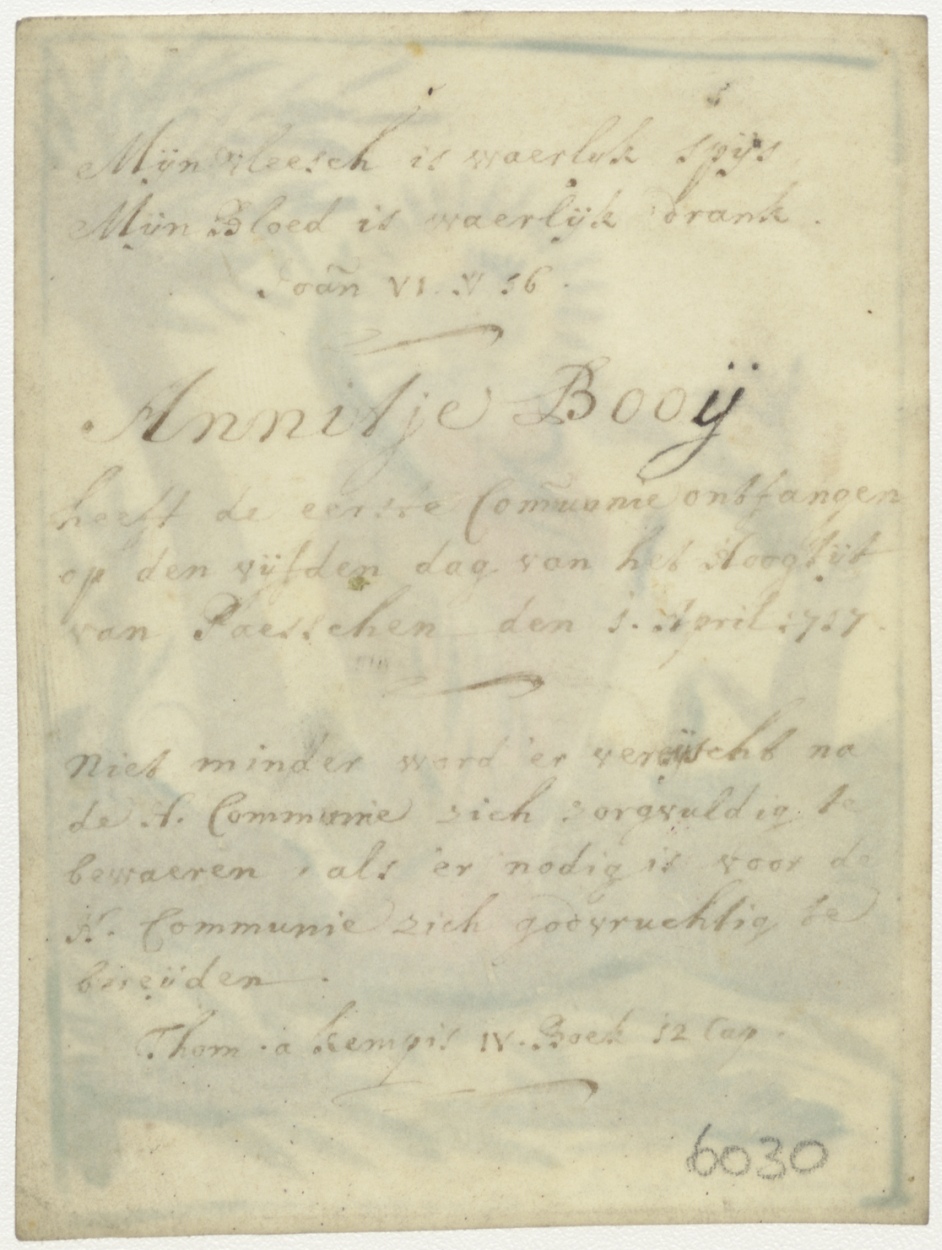 Mijn vleesch is waerlyk spijs
Mijn Bloed is waerlijk drank.
Joan̄ VI. V 56.
Annitje Booÿ
heeft de eerste Com̄unie ontfangen
op den vijfden dag van het Hoogtijt
van Paesschen den 1. April 1717.
Niet minder word 'er vereijscht na
de H. Communie zich zorgvuldig te
bewaeren, als 'er nodig is voor de
H. Communie zich godvruchtig te
bereijden.
Thom. a Kempis IV. Boek 12 Cap.
6030